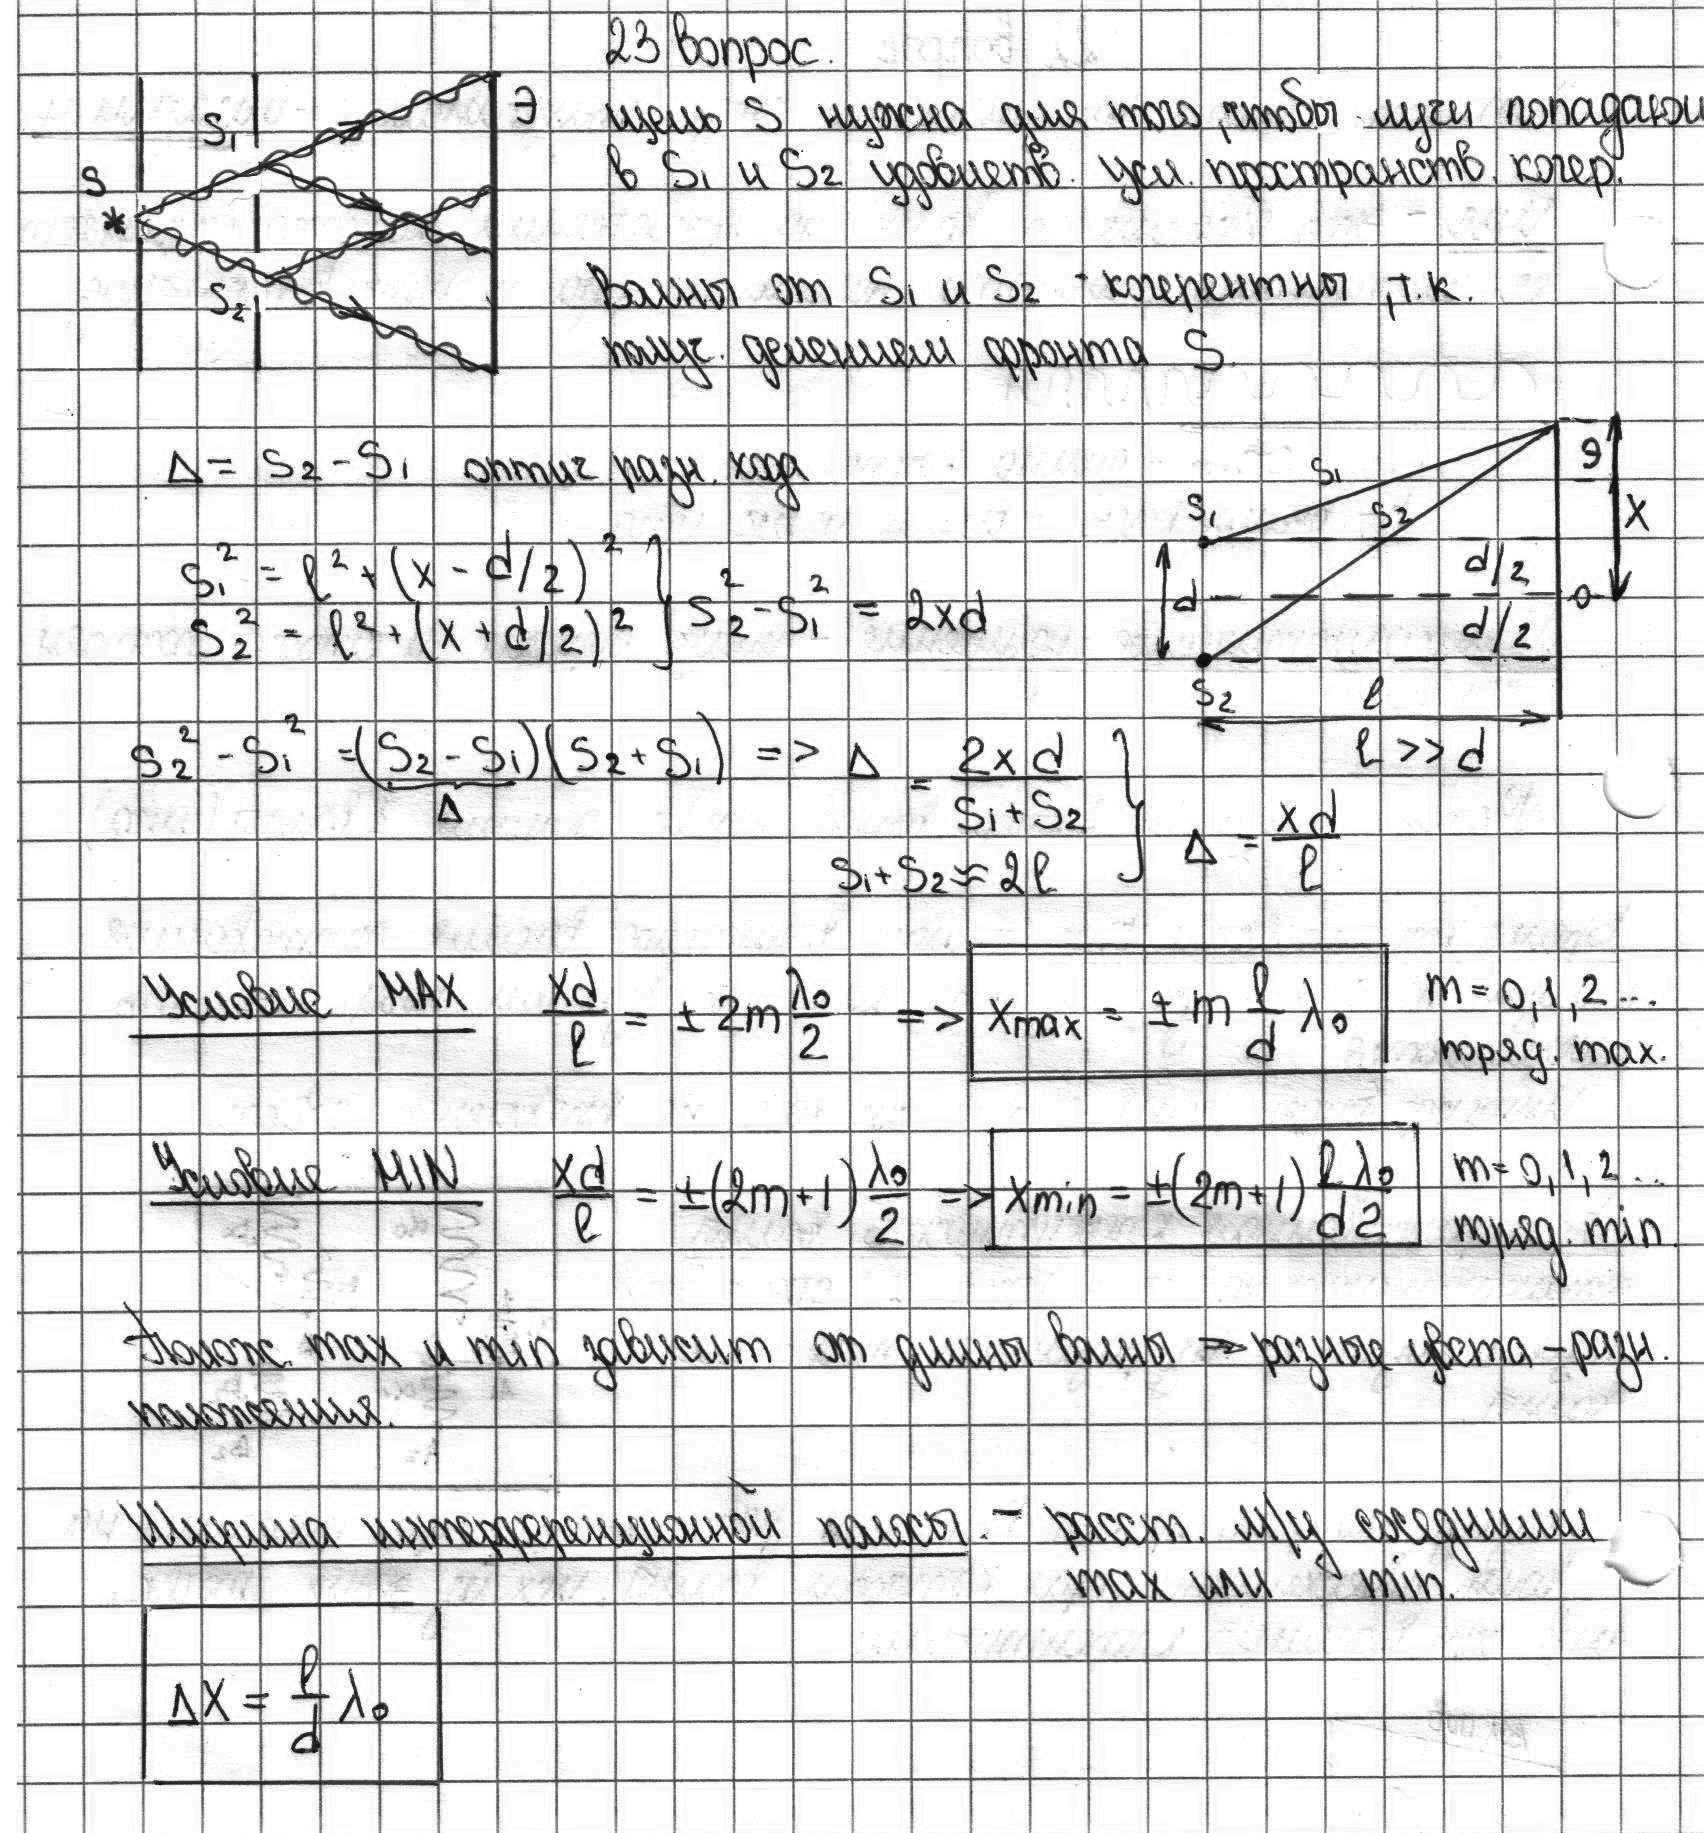 23 вопрос.
S
S₁
S₂
Э
щель S нужна для того, чтобы лучи попадающ
в S₁ и S₂ удовлетв. усл. пространств. когер.
Волны от S₁ и S₂ - когерентны, т.к.
получ. делением фронта S
Δ = S₂ - S₁ оптич разн. хода
S₁² = l² + (x - d/2)²
S₂² = l² + (x + d/2)² } S₂² - S₁² = 2xd
S₁
S₂
S₁
S₂
d
d/2
d/2
Э
X
0
l
l >> d
S₂² - S₁² = (S₂ - S₁)(S₂ + S₁) => Δ = 2xd / (S₁ + S₂)
Δ
S₁ + S₂ ≈ 2l } Δ = xd / l
Условие MAX xd/l = ± 2m λ₀/2 => Xmax = ± m l/d λ₀ m = 0, 1, 2 ...
поряд. max.
Условие MIN xd/l = ±(2m+1) λ₀/2 => Xmin = ±(2m+1) lλ₀/d2 m = 0, 1, 2 ...
поряд. min
Полож. max и min зависит от длины волны => разные цвета - разн.
положения.
Ширина интерференционной полосы. - расст. м/у соседними
max или min.
ΔX = l/d λ₀